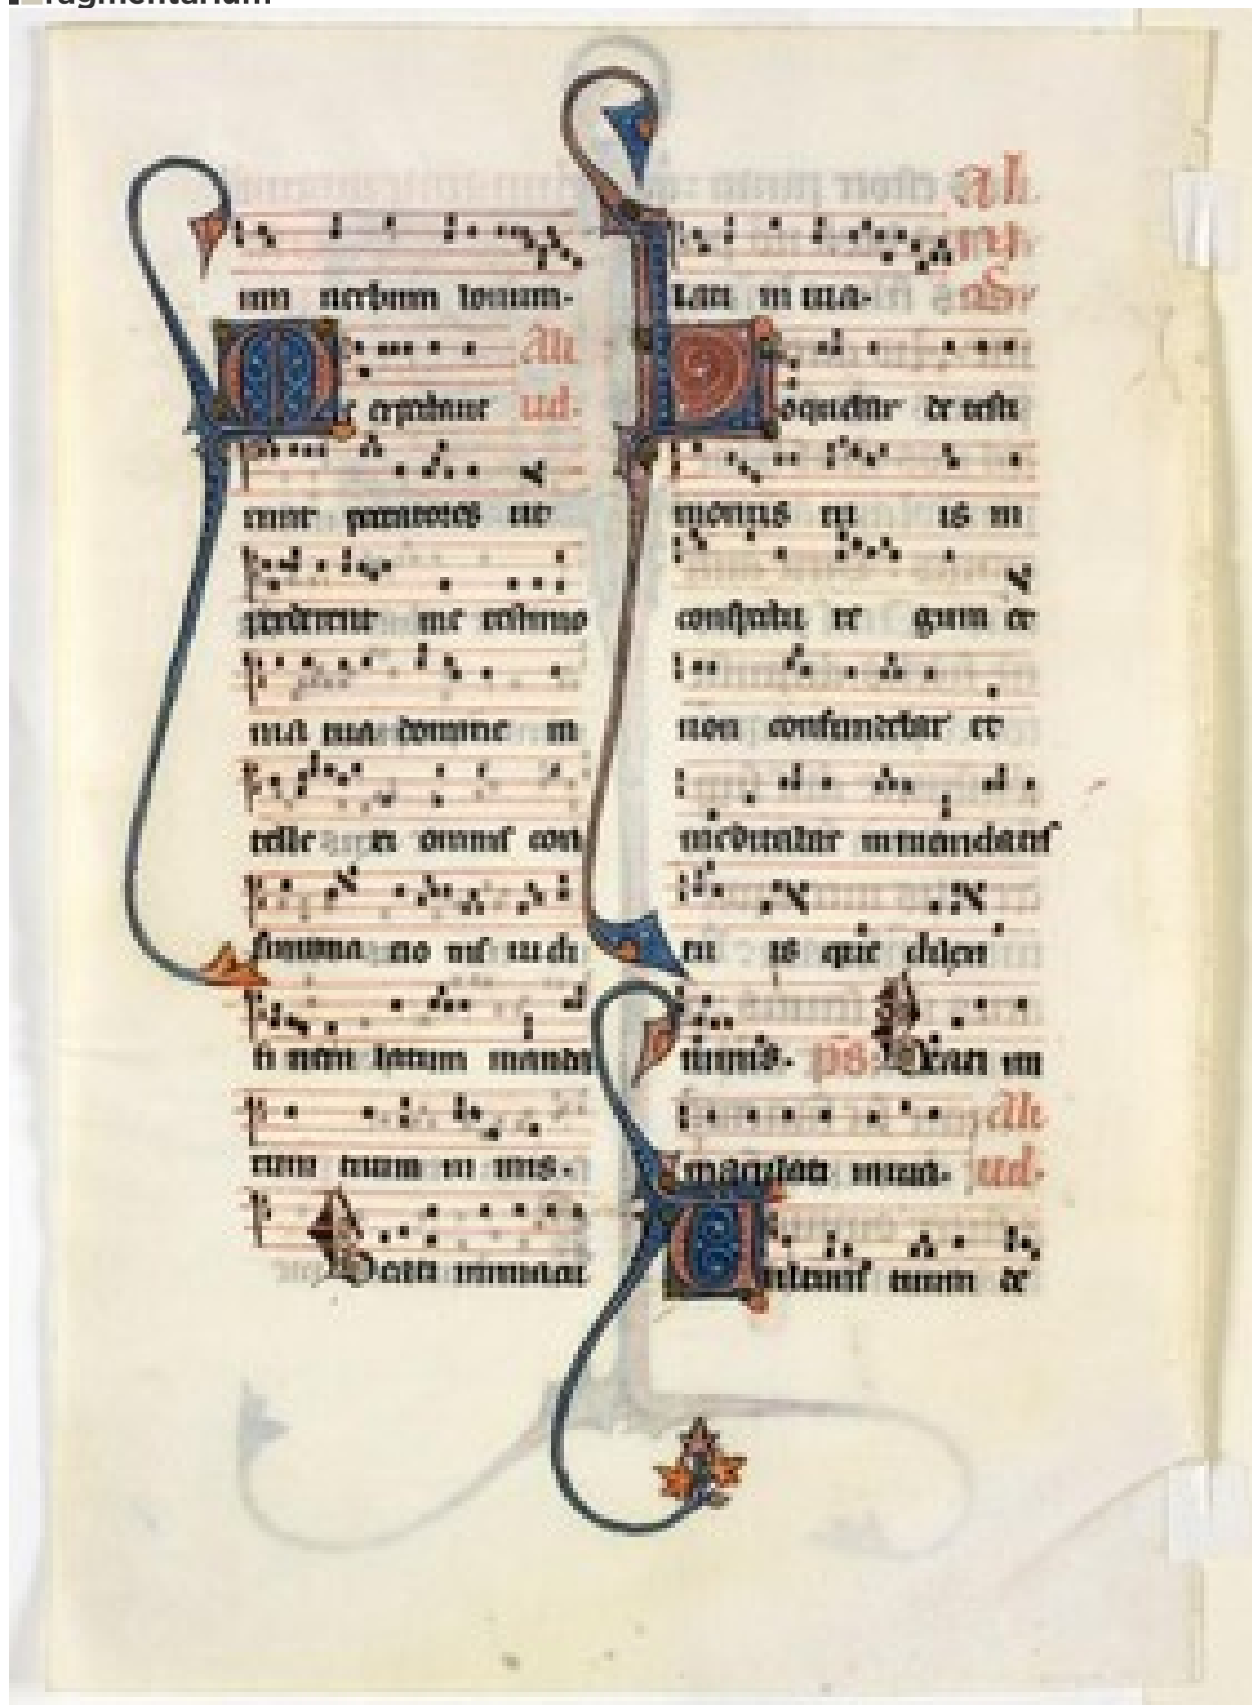 Fragmentarium
um uerbum bonum.
Me expectaue Ali
ud.
runt peccatores ut
perderent me testimo
nia tua domine in
tellexi omnis con
summationis uidi
finem latum manda
tum tuum nimis.
Beati immacu
lati in uia.
Loquebar de testi
moniis tuis in
conspectu regum et
non confundebar et
meditabar in mandatis
tuis que dilexi
nimis. ps. Beati im
maculati in uia. Ali
ud.
de